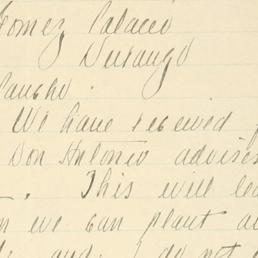 Gomez Palacio
Durango
We have received
Don Antonio advises
This will
we can plant
and I do not